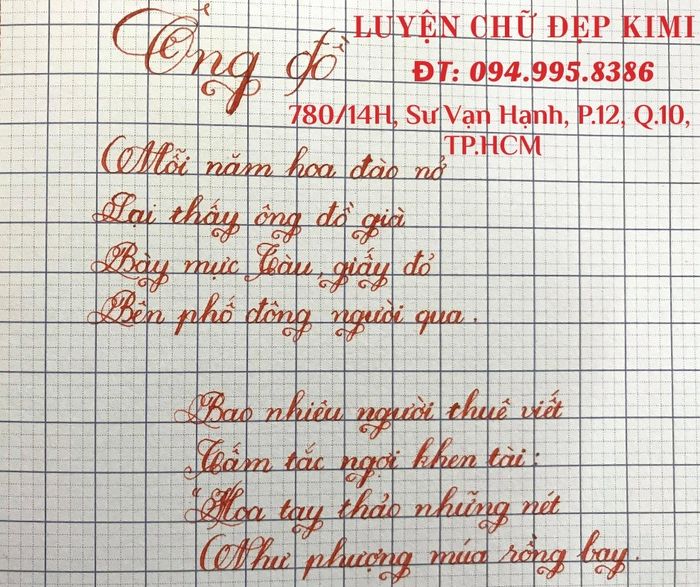 Ông đồ
LUYỆN CHỮ ĐẸP KIMI
ĐT: 094.995.8386
780/14H, Sư Vạn Hạnh, P.12, Q.10,
TP.HCM
Mỗi năm hoa đào nở
Lại thấy ông đồ già
Bày mực Tàu, giấy đỏ
Bên phố đông người qua.
Bao nhiêu người thuê viết
Tấm tắc ngợi khen tài:
Hoa tay thảo những nét
Như phượng múa rồng bay.